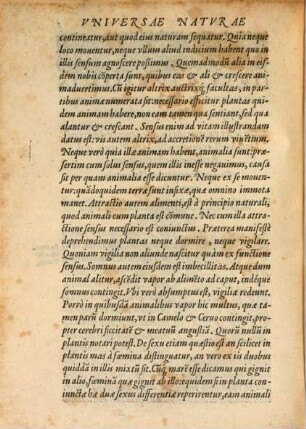 VNIVERSAE NATVRAE
contineatur, aut quod eius naturam sequatur. Quia neque
loco mouentur, neque vllum aliud indicium habent quo in
illis sensum agnoscere possimus. Quemadmodũ alia in eis-
dem nobis cõperta sunt, quibus eas & ali & crescere ani-
maduertimus. Cũ igitur altrix auctrixq́; facultas, in par-
tibus animæ numerata sit: necessario efficitur plantas qui-
dem animam habere, non eam tamen qua sentiant, sed qua
alantur & crescant. Sensus enim ad vitam illustrandam
datus est: vis autem altrix, ad accretionē rerum viuẽtium.
Neque verò quia illæ animam habent, animalia sunt: præ-
sertim cum salus sensus, quem illis inesse negauimus, causa
sit per quam animalia esse dicuntur. Neque ex se mouen-
tur: quãdoquidem terræ sunt infixæ, quæ omnino immota
manet. Attractio autem alimenti, est à principio naturali,
quod animali cum planta est cõmune. Nec cum illa attra-
ctione sensus necessario est coniunctus. Præterea manifestè
deprehendimus plantas neque dormire, neque vigilare.
Quoniam vigilia non aliunde nascitur quàm ex functione
sensus. Somnus autem eiusdem est imbecillitas. Atque dum
animal alitur, ascẽdit vapor ab alimẽto ad caput, indéque
somnus contingit. Vbi verò absumptus est, vigilia redeunt.
Porrò in quibusdã animalibus vapor hic multus, quæ ta-
men parũ dormiunt, vt in Camelo & Ceruo contingit, pro-
pter cerebri siccitatē & meatuũ angustiã. Quorũ nullũ in
plantis notari potest. De sexu etiam quæstio est an scilicet in
plantis mas à fœmina distinguatur, an verò ex iis duobus
quiddã in illis mixtũ sit. Cũq́; marē esse dicamus qui gignit
in alio, fœminã quæ gignit ab illo: equidem si in planta con-
iunctæ hæ duæ sexus differentiæ reperirentur, eam animali